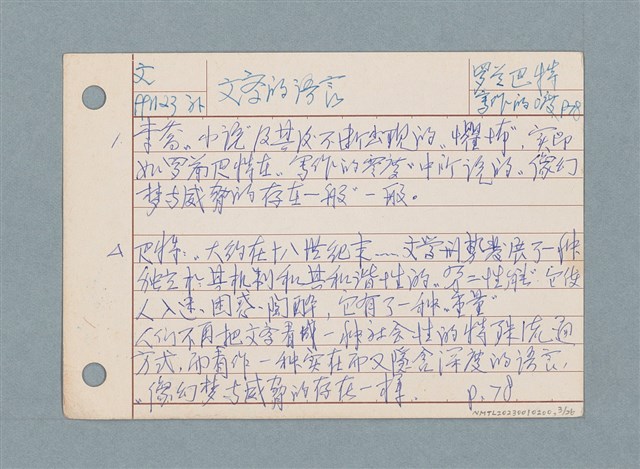 文
文学的语言
罗兰巴特
写作的 P78
李乔"小说"及其反不断出现的"惧怖",实即
如罗兰巴特在"写作的零度"中所说的"像幻
梦与威胁的存在一般"一般。
巴特:"大约在十八世纪末……文学形势发展了一种
独立於其机制和其和谐性的"第二性能"它使
人入迷、困惑、陶醉,它有了一种"重量"
人们不再把文学看成一种社会性的特殊流通
方式,而看作一种实在而又隐含深度的语言,
"像幻梦与威胁的存在一样. p.78
NMTL20230010200, 3/26